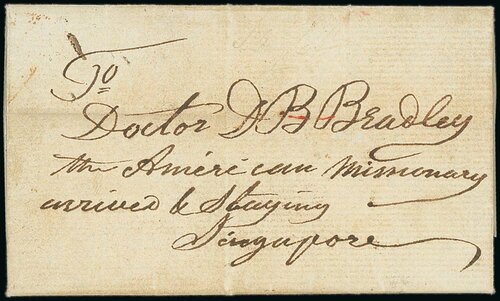 To
Doctor D B Bradley
the American Missionary
arrived & Staying
Singapore